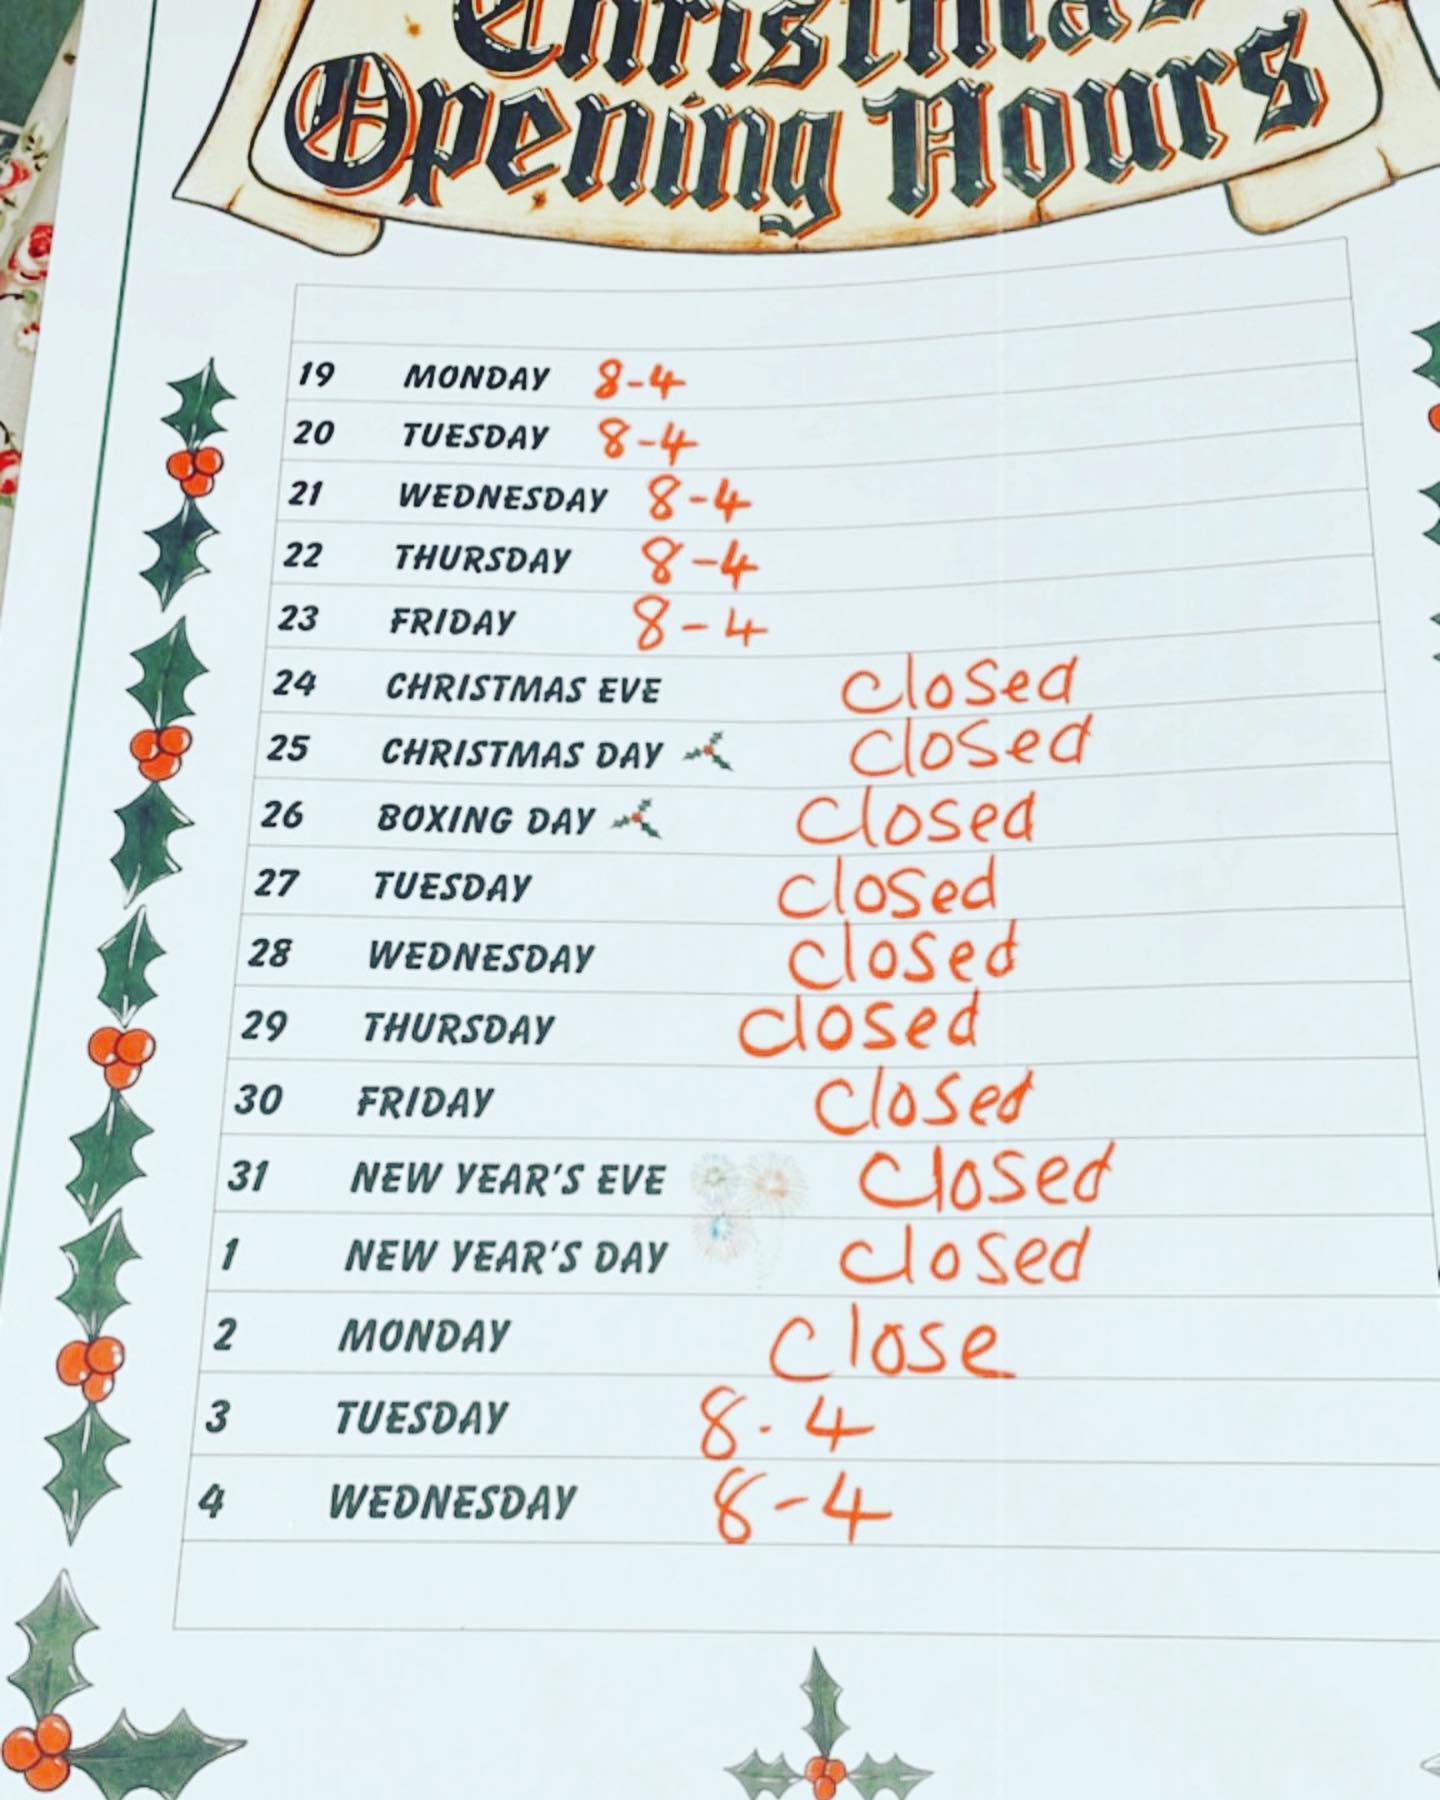 Christmas
Opening Hours
19 MONDAY 8-4
20 TUESDAY 8-4
21 WEDNESDAY 8-4
22 THURSDAY 8-4
23 FRIDAY 8-4
24 CHRISTMAS EVE closed
25 CHRISTMAS DAY closed
26 BOXING DAY closed
27 TUESDAY closed
28 WEDNESDAY closed
29 THURSDAY closed
30 FRIDAY closed
31 NEW YEAR'S EVE closed
1 NEW YEAR'S DAY closed
2 MONDAY close
3 TUESDAY 8-4
4 WEDNESDAY 8-4